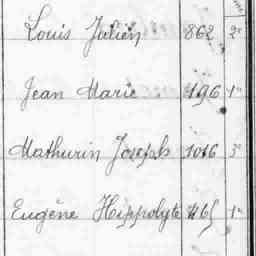 Louis Julien 862 2e
Jean Marie 196 1er
Mathurin Joseph 1016 3e
Eugène Hippolyte 1er